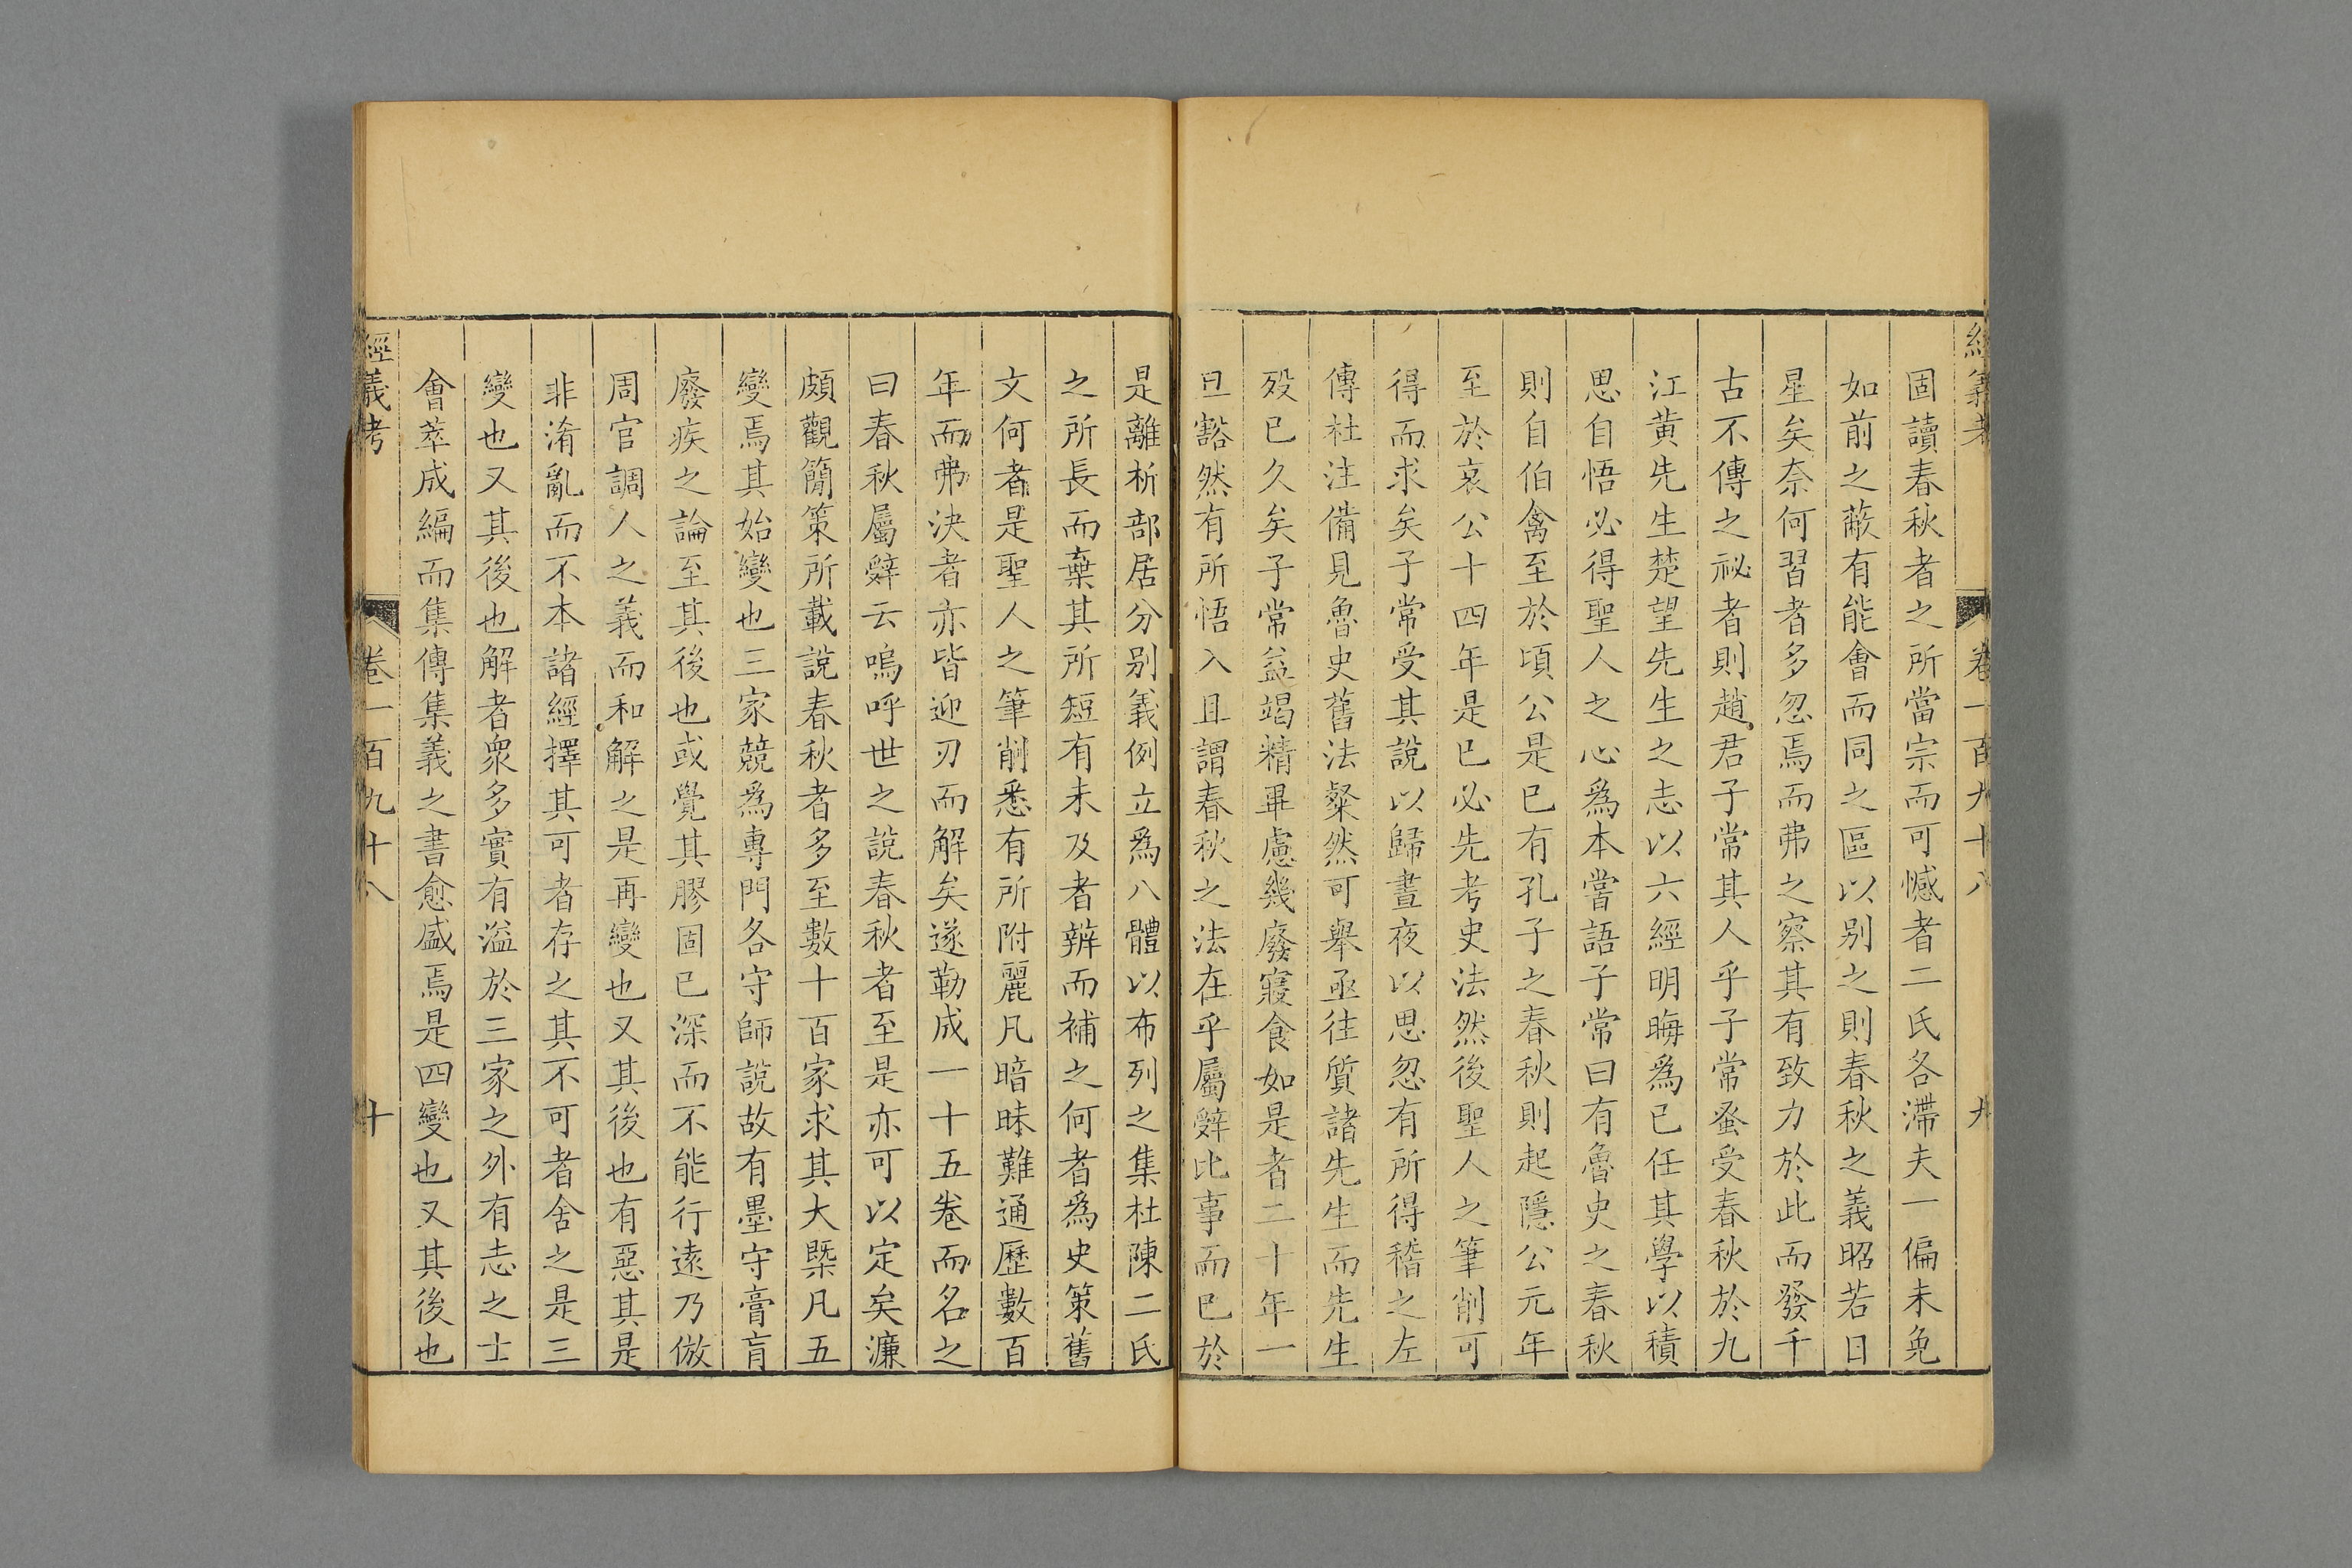 經義考 卷一百九十八 九
固讀春秋者之所當宗而可憾者二氏各滯夫一偏未免
如前之蔽有能會而同之區以别之則春秋之義昭若日
星矣奈何習者多忽焉而弗之察其有致力於此而發千
古不傳之祕者則趙君子常其人乎子常蚤受春秋於九
江黄先生楚望先生之志以六經明晦爲已任其學以積
思自悟必得聖人之心爲本嘗語子常曰有魯史之春秋
則自伯禽至於頃公是已有孔子之春秋則起隱公元年
至於哀公十四年是已必先考史法然後聖人之筆削可
得而求矣子常受其說以歸晝夜以思忽有所得稽之左
傳杜注備見魯史舊法粲然可舉亟往質諸先生而先生
殁已久矣子常益竭精畢慮幾廢寢食如是者二十年一
旦豁然有所悟入且謂春秋之法在乎屬辭比事而已於
是離析部居分别義例立爲八體以布列之集杜陳二氏
之所長而棄其所短有未及者辨而補之何者爲史策舊
文何者是聖人之筆削悉有所附麗凡暗昧難通歷數百
年而弗決者亦皆迎刃而解矣遂勒成一十五卷而名之
曰春秋屬辭云嗚呼世之說春秋者至是亦可以定矣濂
頗觀簡策所載說春秋者多至數十百家求其大槩凡五
變焉其始變也三家競爲專門各守師說故有墨守膏肓
廢疾之論至其後也或覺其膠固已深而不能行遠乃倣
周官調人之義而和解之是再變也又其後也有惡其是
非淆亂而不本諸經擇其可者存之其不可者舍之是三
變也又其後也解者衆多實有溢於三家之外有志之士
會萃成編而集傳集義之書愈盛焉是四變也又其後也
經義考 卷一百九十八 十